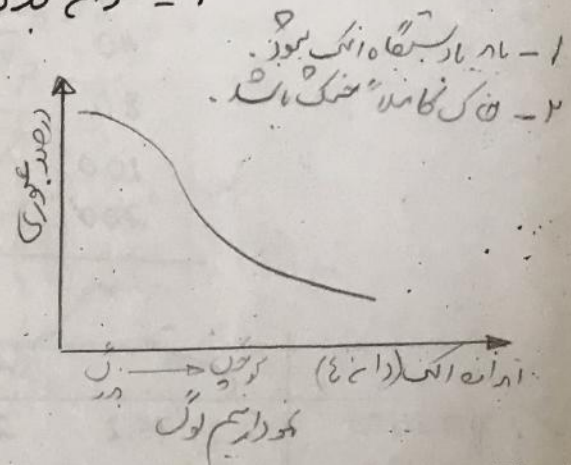 ۱- باید با دستگاه الک نمود.
۲- خاک کاملاً خشک باشد.
درصد عبوری
بزرگ → کوچک
اندازه الک (دانه ها)
نمودار نیم لوگ